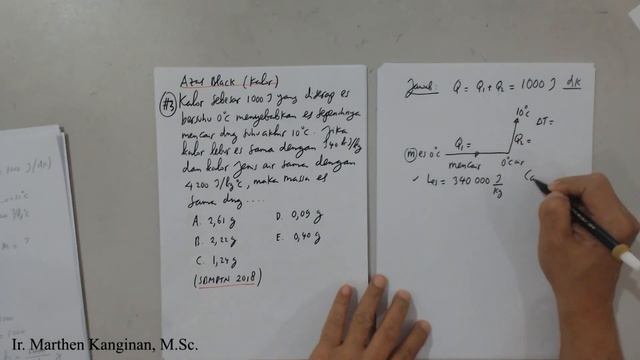 Azas Black (Kalor)
#3 Kalor sebesar 1000 J yang diserap es
bersuhu 0°C menyebabkan es sepenuhnya
mencair dng suhu akhir 10°C. Jika
kalor lebur es sama dengan 340 kJ/kg
dan kalor jenis air sama dengan
4200 J/kg°C, maka massa es
sama dng ....
A. 2,61 g
B. 2,22 g
C. 1,24 g
D. 0,09 g
E. 0,40 g
(SBMPTN 2018)
Jawab: Q = Q₁ + Q₂ = 1000 J dik
10°C
ΔT =
Q₁ =
Q₂ =
m es 0°C
mencair
0°C air
✓ Les = 340 000 J/kg
Ir. Marthen Kanginan, M.Sc.